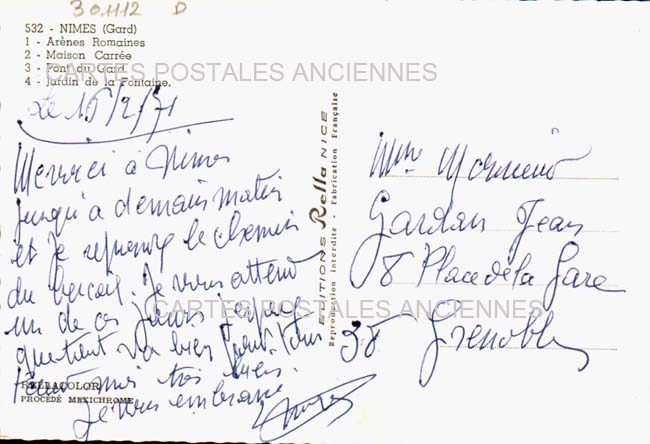 30.1112 D
532 - NIMES (Gard)
1 - Arènes Romaines
2 - Maison Carrée
3 - Pont du Gard
4 - Jardin de la Fontaine.
CARTES POSTALES ANCIENNES
Le 15/2/71
Me voici à Nimes
jusqu'à demain matin
et je reprends le chemin
du bercail. Je vous attend
un de ces jours. j'espère
que tout va bien pour vous
pour moi très bien.
Je vous embrasse
RELLACOLOR
PROCÉDÉ MEXICHROME
EDITIONS Rella NICE
Reproduction interdite - Fabrication Française
Mme Monsieur
Gardan Jean
8 Place de la Gare
CARTES POSTALES ANCIENNES
38 Grenoble